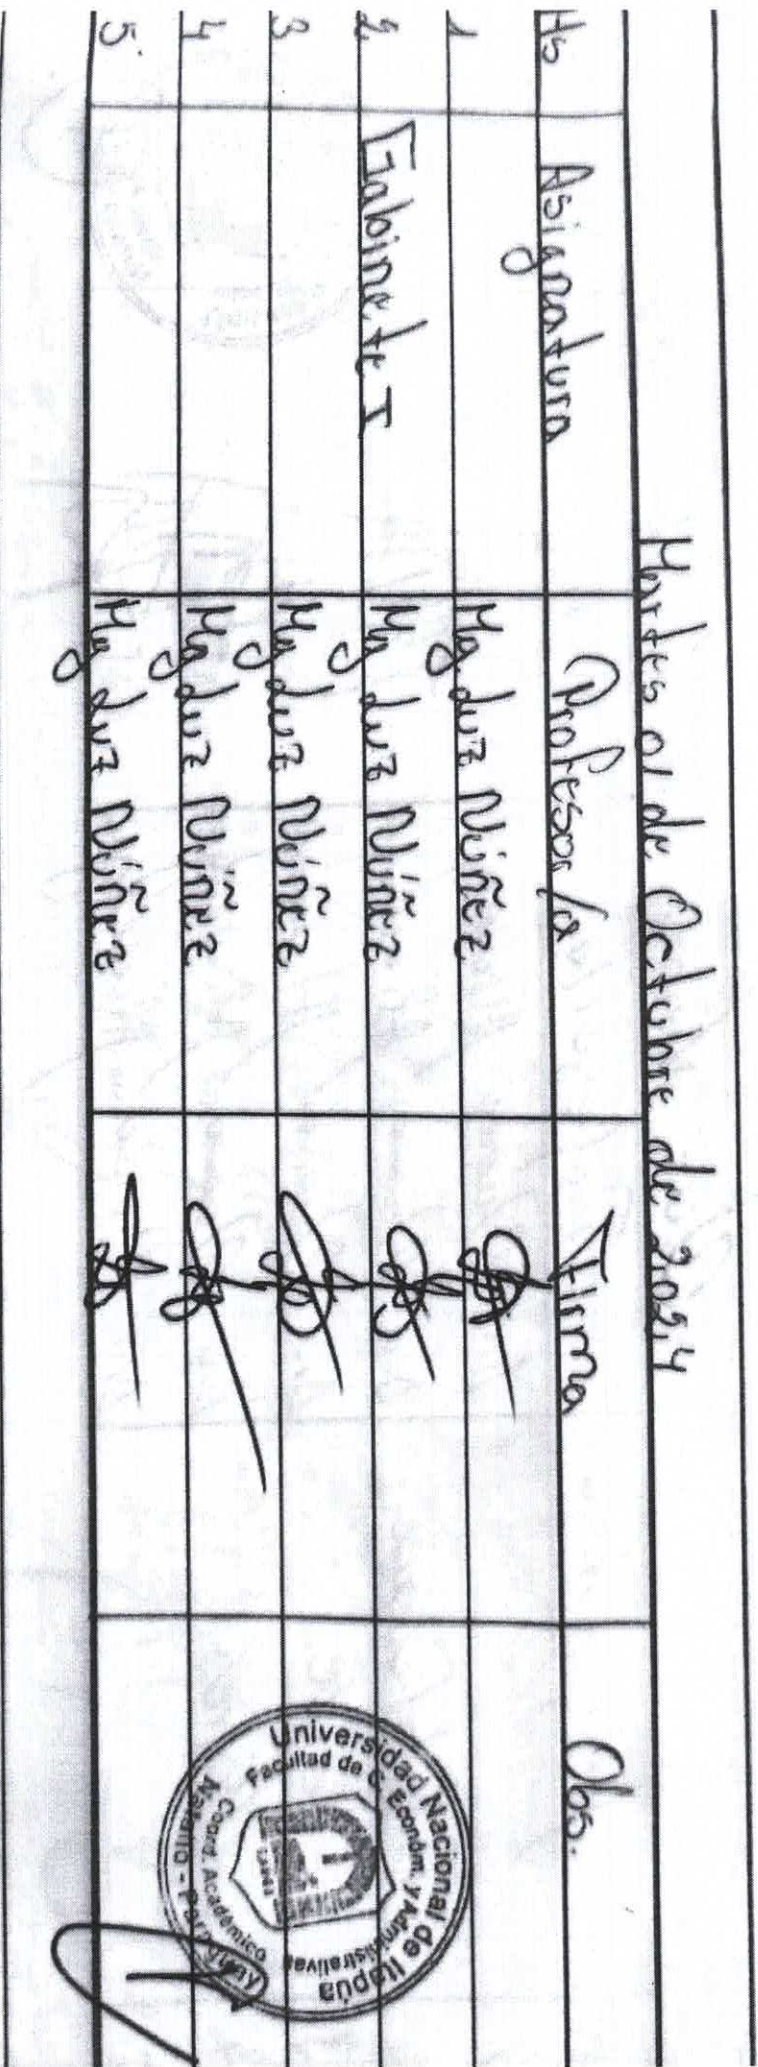 Martes 01 de Octubre de 2.024
Hs Asignatura Profesor/a Firma Obs.
1 Mg Luz Núñez
2 Gabinete I Mg Luz Núñez
3 Mg Luz Núñez
4 Mg Luz Núñez
5. Mg Luz Núñez
Universidad Nacional de Itapúa
Facultad de C. Económ. y Administrativas
Coord. Académico
Natalio - Paraguay